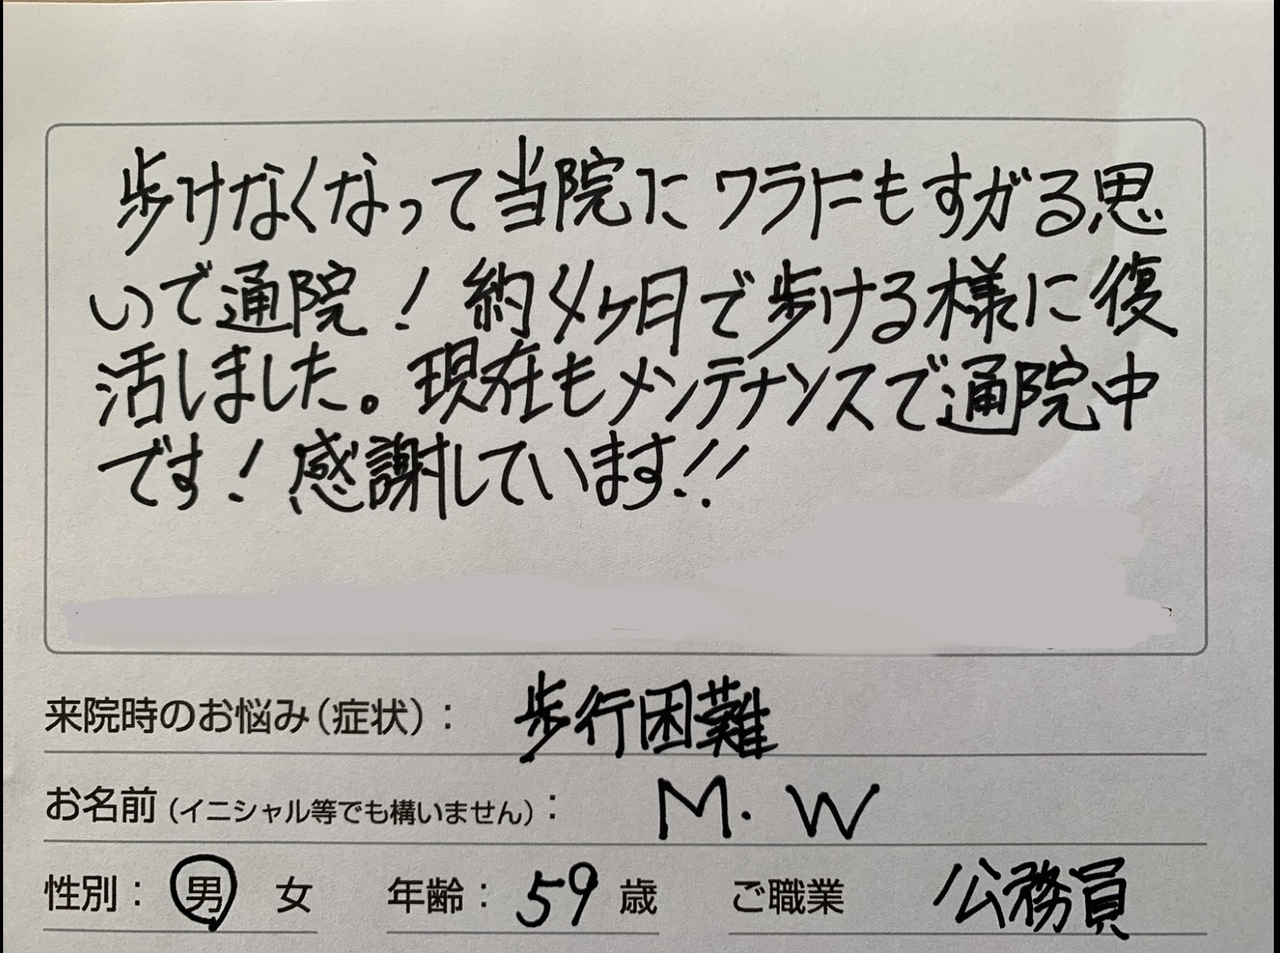 歩けなくなって当院にワラにもすがる思
いで通院！約4ヶ月で歩ける様に復
活しました。現在もメンテナンスで通院中
です！感謝しています!!
来院時のお悩み（症状）： 歩行困難
お名前（イニシャル等でも構いません）： M.W
性別： 男 女 年齢： 59 歳 ご職業 公務員